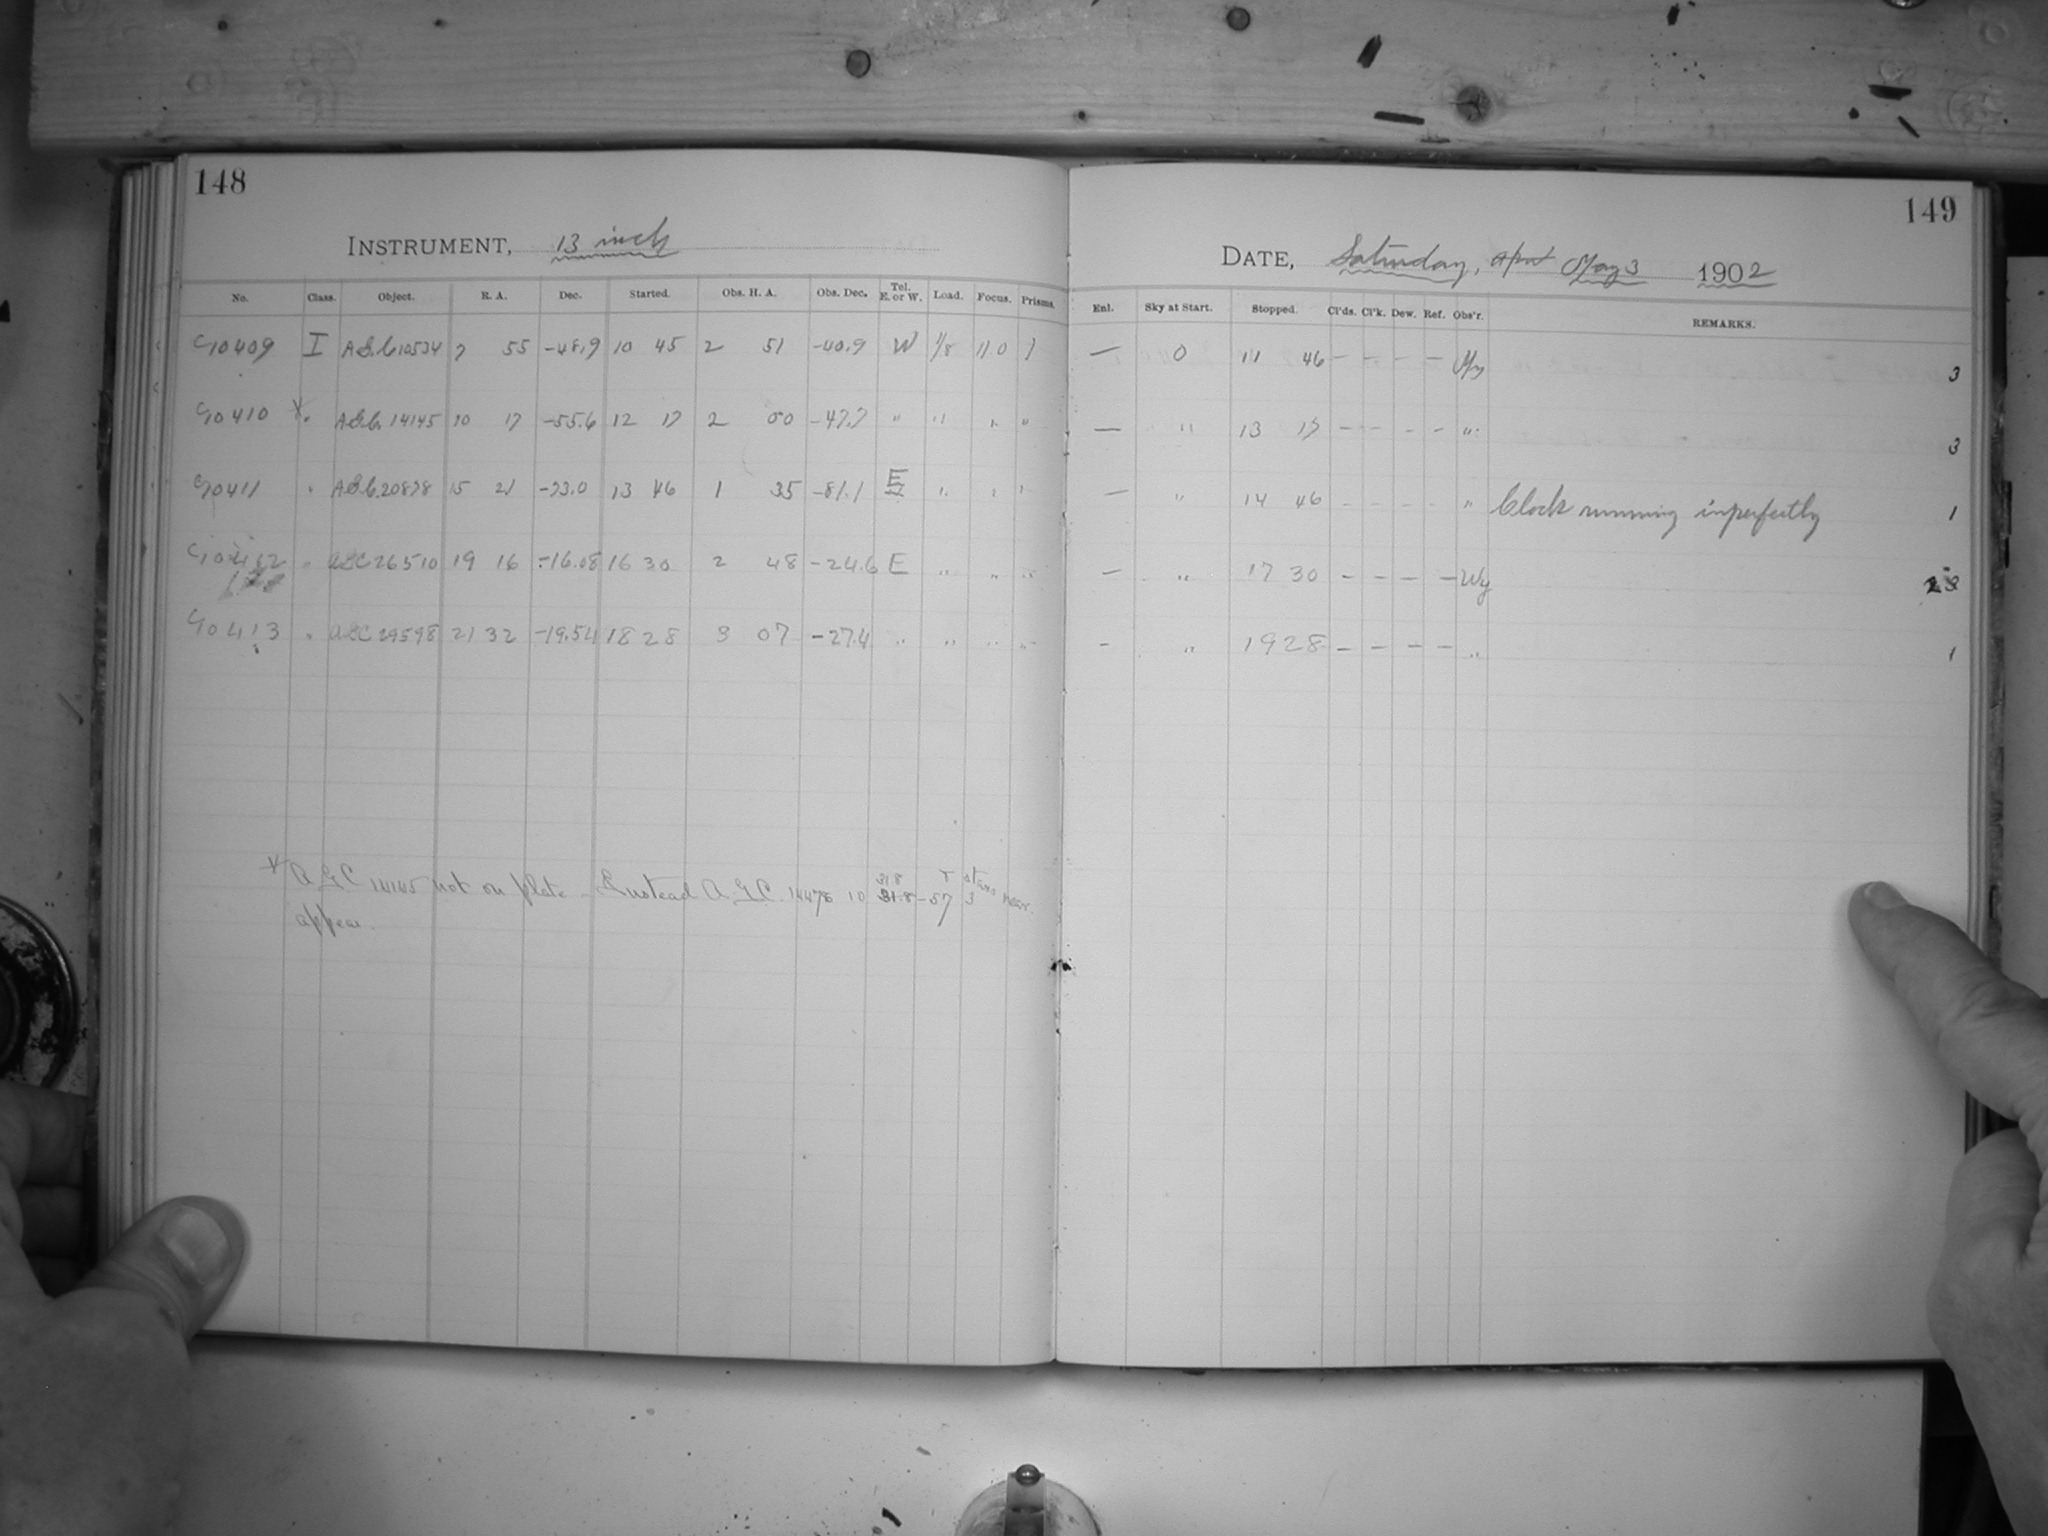 148
INSTRUMENT, 13 inch
No. Class. Object. R. A. Dec. Started. Obs. H. A. Obs. Dec. Tel. E. or W. Load. Focus. Prisms.
I A.G.C. 10534 7 55 -48.9 10 45 2 51 -40.9 W 1/8 11.0 1
" A.G.C. 14145 10 17 -55.6 12 17 2 00 -47.7 " " " "
" A.G.C. 20878 15 21 -73.0 13 46 1 35 -81.1 E " " "
" AGC 26510 19 16 -16.08 16 30 2 48 -24.6 E " " "
" AGC 29598 21 32 -19.54 18 28 3 07 -27.4 " " " "
AGC 14145 not on plate - Instead A.G.C. 14478 10 31.8 -57 3
appear.
149
DATE, Saturday, April May 3 1902
Enl. Sky at Start. Stopped. Cl'ds. Cl'k. Dew. Ref. Obs'r. REMARKS.
— 0 11 46 — — — — 3
— " 13 17 — — — — " 3
— " 14 46 - - - - " Clock running imperfectly 1
— " 17 30 — — — — Wy
- " 19 28 — — — — " 1